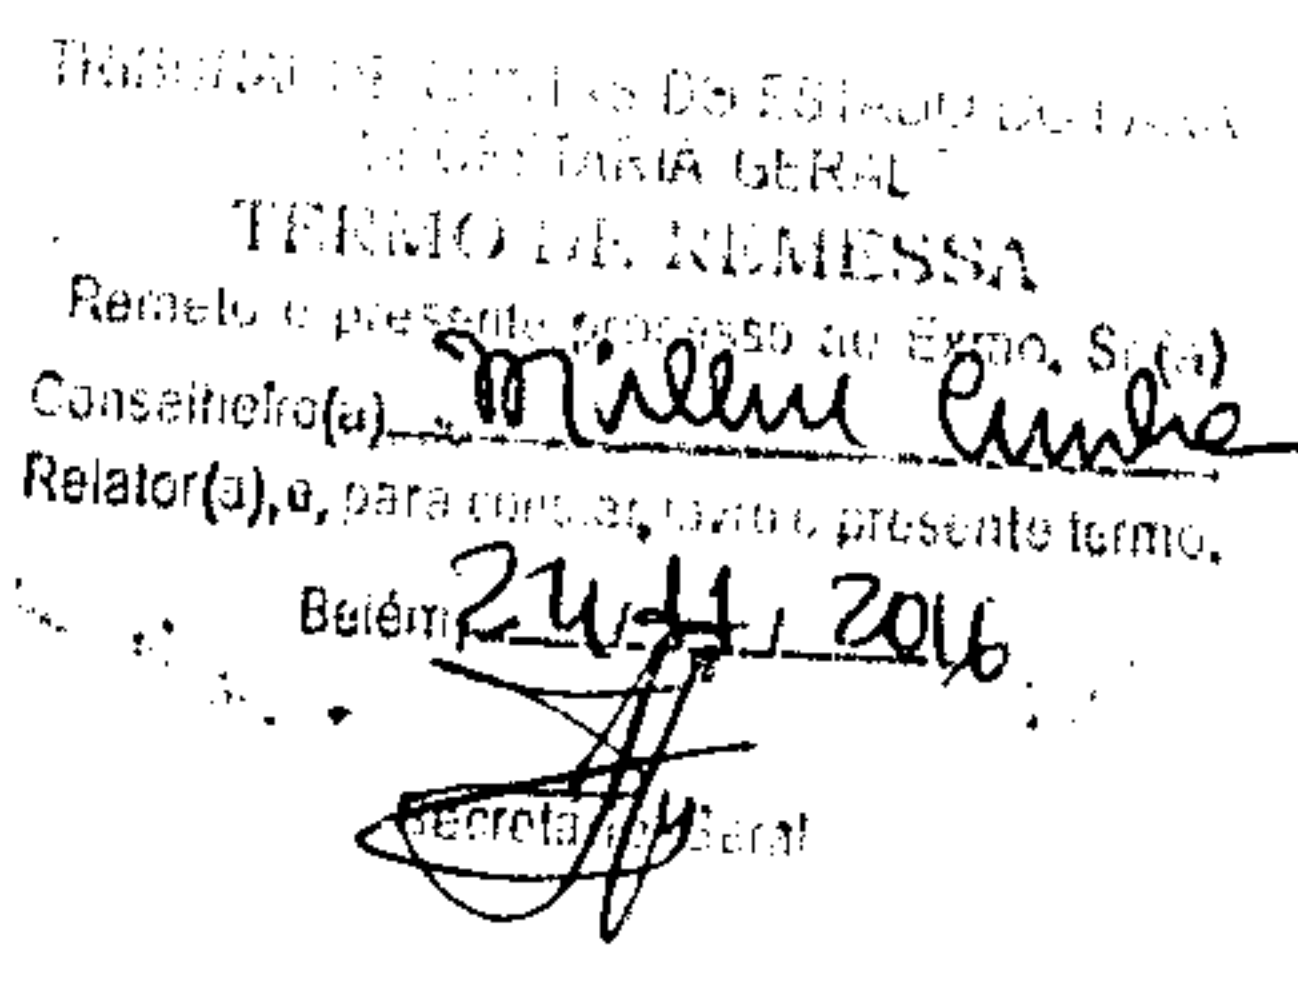 TRIBUNAL DE CONTAS DO ESTADO DO PARÁ
SECRETARIA GERAL
TERMO DE REMESSA
Remeto o presente processo ao Exmo. Sr.(a)
Conselheiro(a) Milene Cunha
Relator(a), e, para constar, lavro o presente termo.
Belém, / 11 / 2016
Secretário Geral